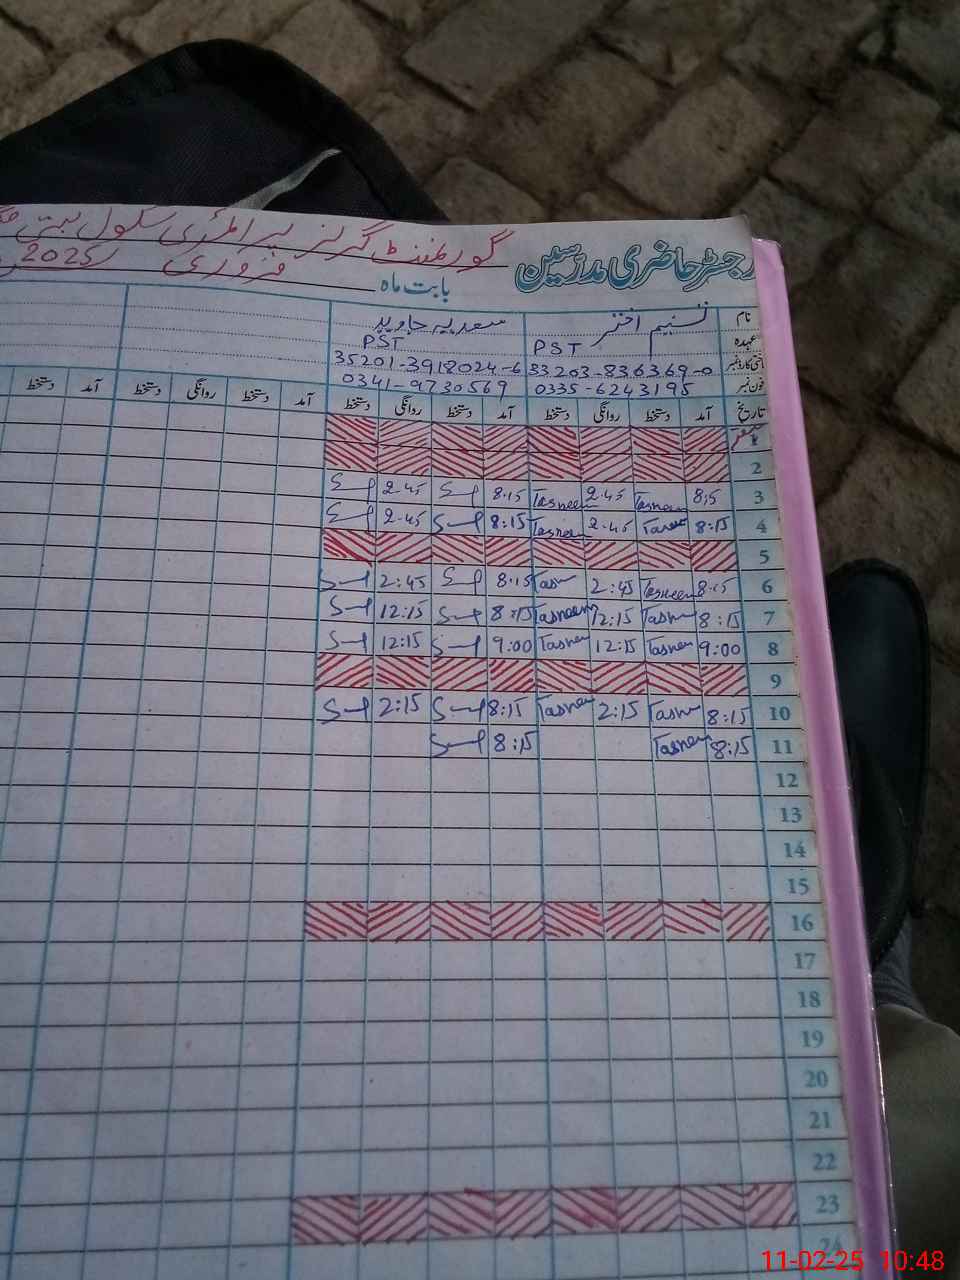 رجسٹر حاضری مدرسین گورنمنٹ گرلز پرائمری سکول
بابت ماہ فروری 2025
نام تسنیم اختر سعدیہ جاوید
عہدہ PST PST
شناختی کارڈ نمبر 33203-836369-0 35201-3918024-6
فون نمبر 0335-6243195 0341-9730569
تاریخ آمد دستخط روانگی دستخط آمد دستخط روانگی دستخط آمد دستخط روانگی دستخط آمد دستخط
2
3 8;5 Tasneem 2.45 Tasneem 8.15 2.45
4 8:15 2.45 Tasneem 8:15 2.45
5
6 8.15 Tasneem 2:45 Tasn 8.15 2:45
7 8:15 Tasnem 12:15 Tasneem 8:15 12:15
8 9:00 Tasnem 12:15 Tasnem 9:00 12:15
9
10 8:15 Tasnm 2:15 Tasnem 8:15 2:15
11 8:15 Tasnem 8:15
12
13
14
15
16
17
18
19
20
21
22
23
24
11-02-25 10:48